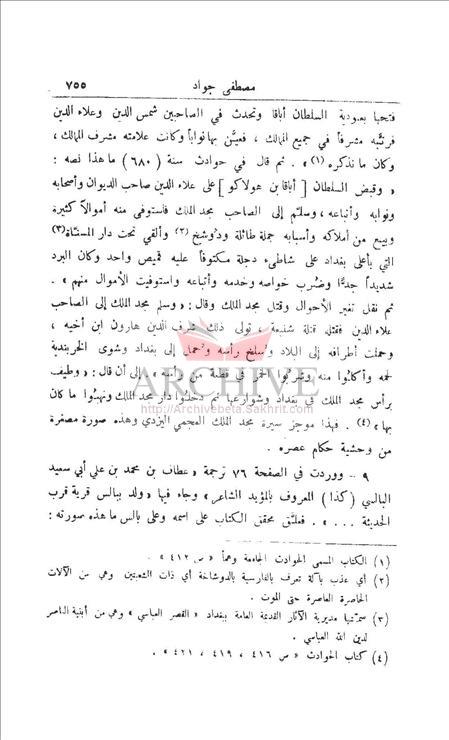 مصطفى جواد ٧٥٥
فتحيا بعبودية السلطان أباقا وتحدث في الصاحبين شمس الدين وعلاء الدين
فرتّبه مشرفاً في جميع الممالك ، فعيّن بها نواباً وكانت علامته مشرف الممالك ،
وكان ما نذكره (١) » . ثم قال في حوادث سنة (٦٨٠) ما هذا نصه :
« وقبض السلطان [ أباقا بن هولاكو ] على علاء الدين صاحب الديوان وأصحابه
ونوابه وأتباعه ، وسلّم إلى الصاحب مجد الملك فاستوفى منه أموالاً كثيرة
وبيع من أملاكه وأسبابه جملة طائلة ودُوشِخ (٢) وألقي تحت دار المسنّاة (٣)
التي بأعلى بغداد على شاطىء دجلة مكتوفاً عليه قميص واحد وكان البرد
شديداً جدّاً وضُرب خواصه وخدمه وأتباعه واستوفيت الأموال منهم » .
ثم نقل تغير الأحوال وقتل مجد الملك وقال : « وسلم مجد الملك إلى الصاحب
علاء الدين فقتله قتلة شنيعة ، تولى ذلك شرف الدين هارون ابن أخيه ،
وحملت أطرافه إلى البلاد وسُلخ رأسه وحمل إلى بغداد وشوى الخربندية
لحمه وأكلوا منه وشربوا الخمر في قطعة من رأسه » إلى أن قال : « وطيف
برأس مجد الملك في بغداد وشوارعها ثم دخلوا دار مجد الملك ونهبوا ما كان
بها » (٤) . فهذا موجز سيرة مجد الملك العجمي اليزدي وهذه صورة مصغرة
من وحشية حكام عصره .
٩ ــ ووردت في الصفحة ٧٦ ترجمة « عطاف بن محمد بن علي أبي سعيد
البالسي ( كذا ) المعروف بالمؤيد الشاعر » وجاء فيها « ولد ببالس قرية قرب
الحديثة ... » . فعلّق محقق الكتاب على اسمه وعلى بالس ما هذه صورته :
(١) الكتاب المسمى الحوادث الجامعة وهماً « ص ٤١٢ » .
(٢) أي عذب بآلة تعرف بالفارسية بالدوشاخة أي ذات الشعبتين وهي من الآلات
الحاصرة العاصرة حتى الموت .
(٣) سمّتها مديرية الآثار القديمة العامة ببغداد « القصر العباسي » وهي من أبنية الناصر
لدين الله العباسي .
(٤) كتاب الحوادث « ص ٤١٦ ، ٤١٩ ، ٤٢١ » .
ARCHIVE
http://Archivebeta.Sakhrit.com